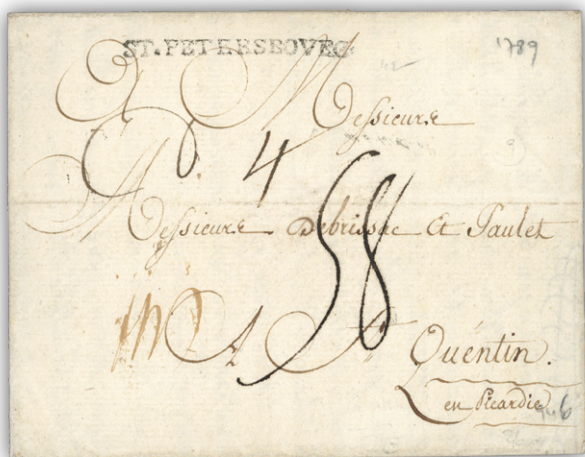 ST. PETERSBOURG
1789
A Messieurs
4
Messieurs Debrissac Et Paulet
58
A St Quentin.
en Picardie